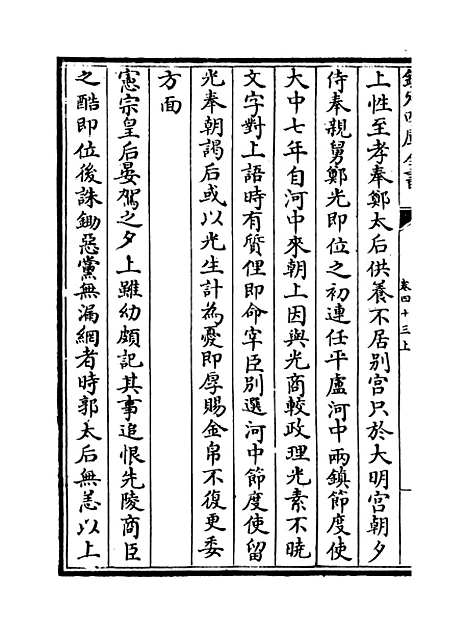 欽定四庫全書
卷四十三上
上性至孝奉鄭太后供養不居别宮只於大明宮朝夕
侍奉親舅鄭光即位之初連任平盧河中兩鎮節度使
大中七年自河中來朝上因與光商較政理光素不曉
文字對上語時有質俚即命宰臣别選河中節度使留
光奉朝謁后或以光生計為憂即厚賜金帛不復更委
方面
憲宗皇后晏駕之夕上雖幼頗記其事追恨先陵商臣
之酷即位後誅鋤惡黨無漏網者時郭太后無恙以上